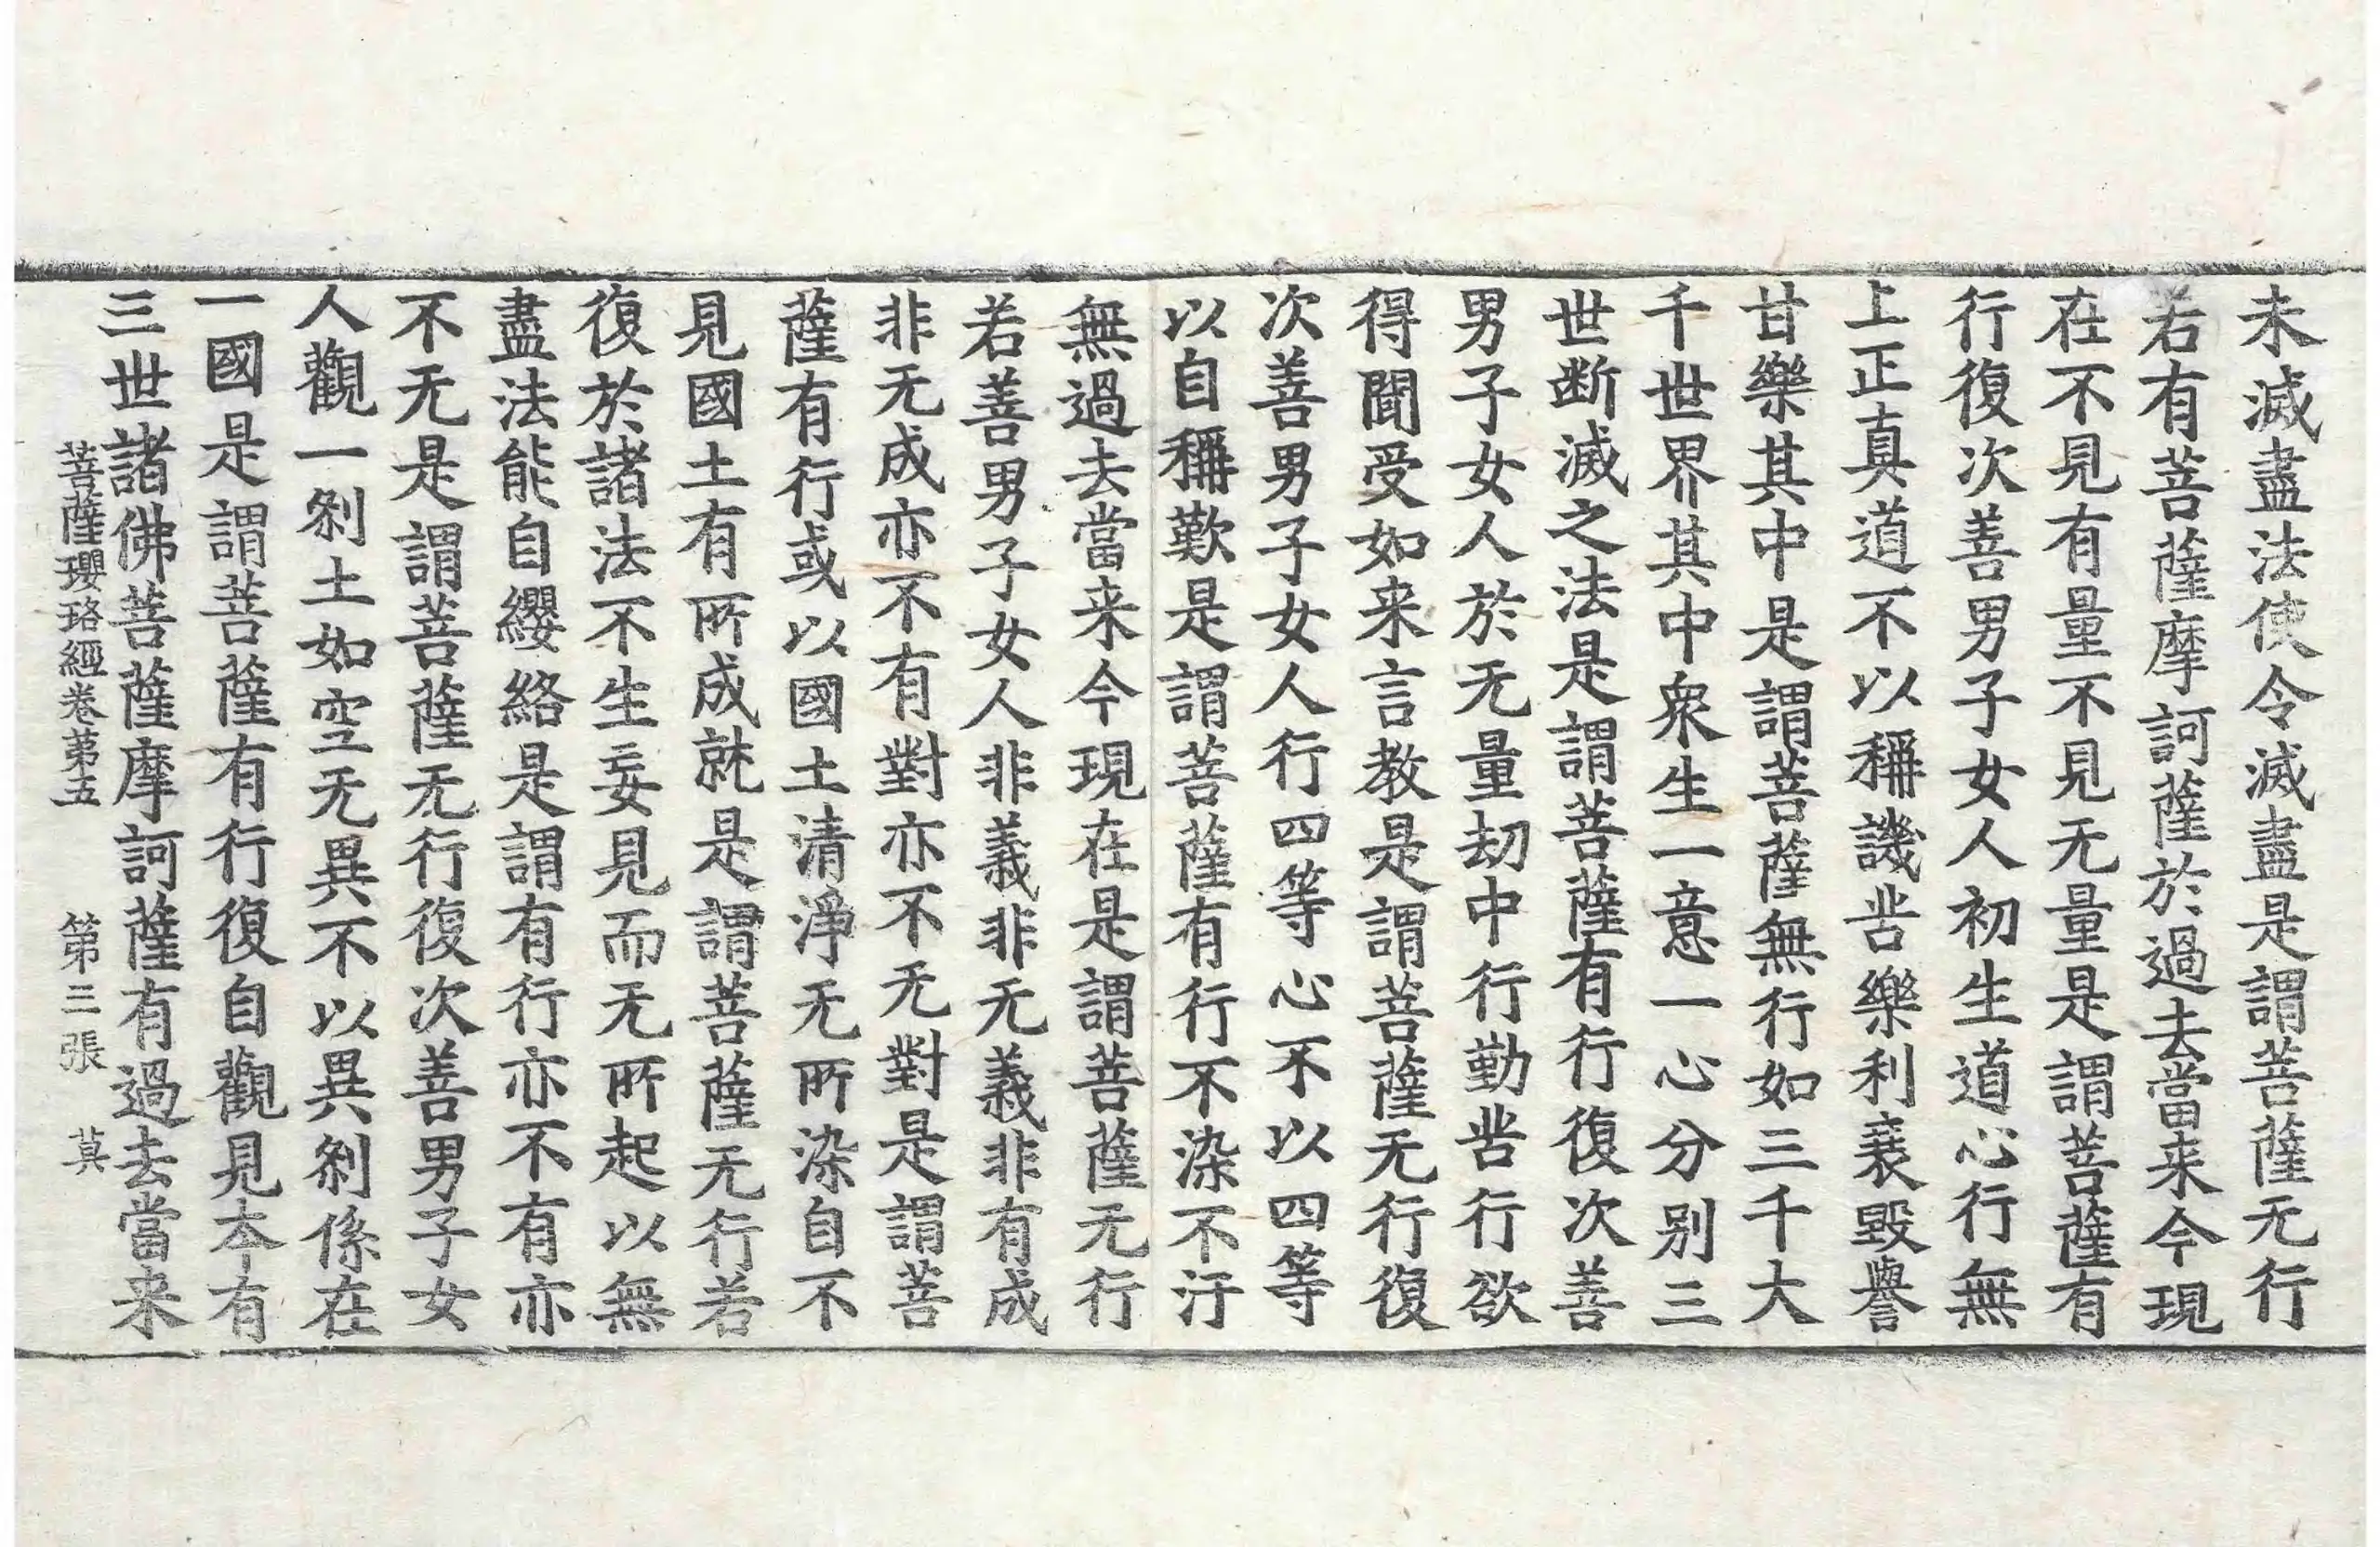 未滅盡法使令滅盡是謂菩薩无行
若有菩薩摩訶薩於過去當来今現
在不見有量不見无量是謂菩薩有
行復次善男子女人初生道心行無
上正真道不以稱譏苦樂利衰毀譽
甘樂其中是謂菩薩無行如三千大
千世界其中衆生一意一心分别三
世断滅之法是謂菩薩有行復次善
男子女人於无量劫中行勤苦行欲
得聞受如来言教是謂菩薩无行復
次善男子女人行四等心不以四等
以自稱歎是謂菩薩有行不染不汙
無過去當来今現在是謂菩薩无行
若善男子女人非義非无義非有成
非无成亦不有對亦不无對是謂菩
薩有行或以國土清淨无所染自不
見國土有所成就是謂菩薩无行若
復於諸法不生妄見而无所起以無
盡法能自纓絡是謂有行亦不有亦
不无是謂菩薩无行復次善男子女
人觀一刹土如空无異不以異刹係在
一國是謂菩薩有行復自觀見夲有
三世諸佛菩薩摩訶薩有過去當来
菩薩瓔珞經卷苐五 第三張 莫